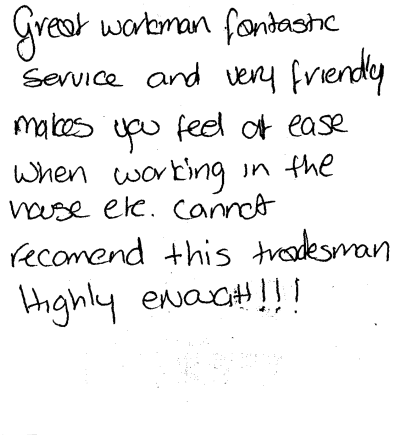 Great workman fantastic
service and very friendly
makes you feel at ease
when working in the
house etc. cannot
recomend this tradesman
Highly enough!!!